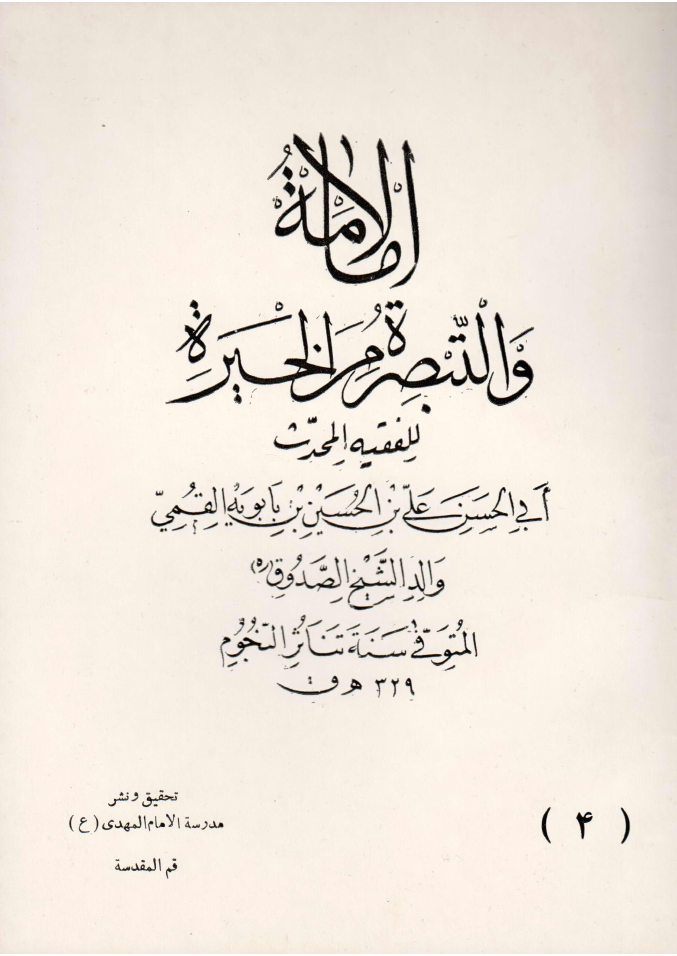 الإمامة
وَالتَّبصِرة مِنَ الحَيرَة
للفقيه المحدّث
أَبي الحسَن عَليّ بْن الحُسَين بْن بَابويَه القِمّي
وَالِدِ الشَّيخ الصَّدُوق (ره)
المُتَوَفّى سَنَة تَنَاثُرِ النُّجُوُم
٣٢٩ ه‍ ق
تحقيق ونشر
مدرسة الامام المهدی (ع)
قم المقدسة
(۴)